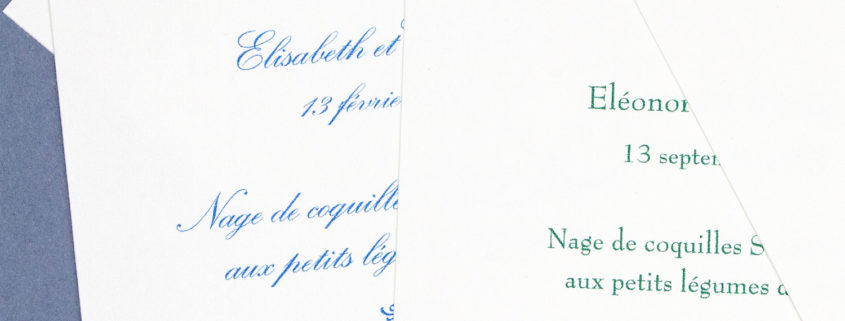 Elisabeth et
13 févrie
Nage de coquille
aux petits lég
Eléonor
13 septem
Nage de coquilles S
aux petits légumes d